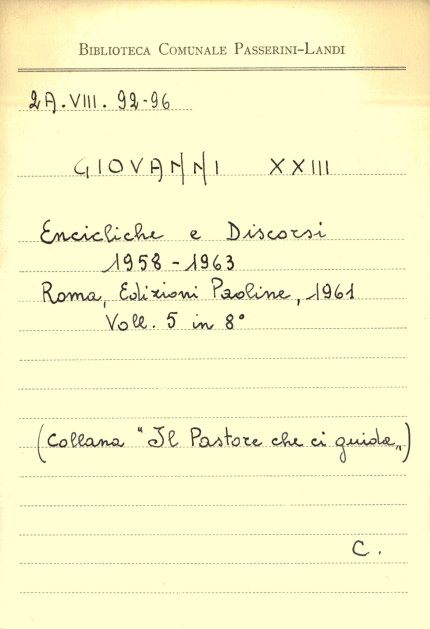 BIBLIOTECA COMUNALE PASSERINI-LANDI
2A.VIII. 92-96
GIOVANNI XXIII
Encicliche e Discorsi
1958-1963
Roma, Edizioni Paoline, 1961
Voll. 5 in 8°
(Collana "Il Pastore che ci guida„)
C.